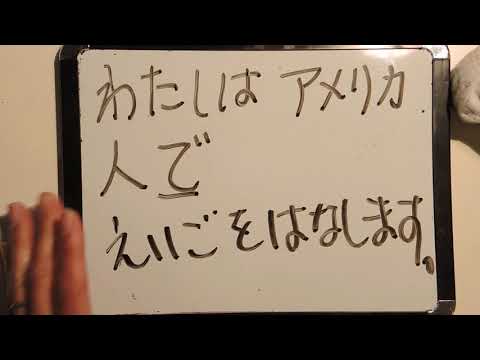 わたしは アメリカ
人で
えいごをはなします。